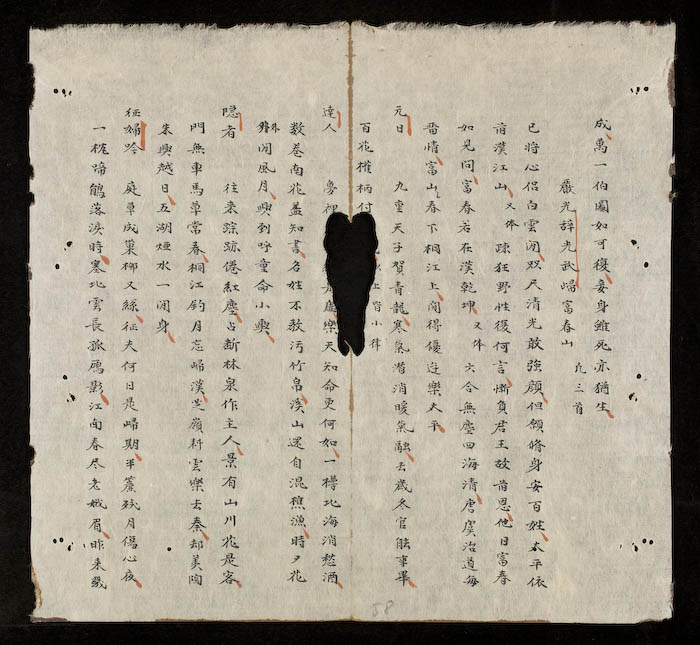 成萬一伯圖如可復妾身雖死亦猶生
嚴光辞光武歸富春山 凡三首
已將心侶白雲閑咫尺清光敢強顔但願脩身安百姓太平依
前漢江山 又体 踈狂野性復何言慚負君王故旧恩他日富春
如見問富春若在漢乾坤 又体 六合無塵四海清唐虞治道每
留情富山春下桐江上閑得優遊樂太平
元日 九重天子賀青龍寒氣潜消暖氣融去歳冬官能事畢
百花權柄付 以上皆小律
達人 夢裡 樂天知命更何如一樽北海消愁酒
数卷南花盖知書名姓不教污竹帛溪山還自混樵漁時夕花
外閑風月嘆到呼童命小輿
隠者 往来踪跡倦紅塵占断林泉作主人景有山川花是客
門無車馬草常春桐江釣月忘歸漢芝嶺耕雲樂去秦却羡陶
朱興越日五湖煙水一閑身
征婦吟 庭草成窠柳又絲征夫何日是歸期半簾残月傷心夜
一枕啼鵑落淚時塞北雲長孤鴈影江南春尽老娥眉昨来幾
58